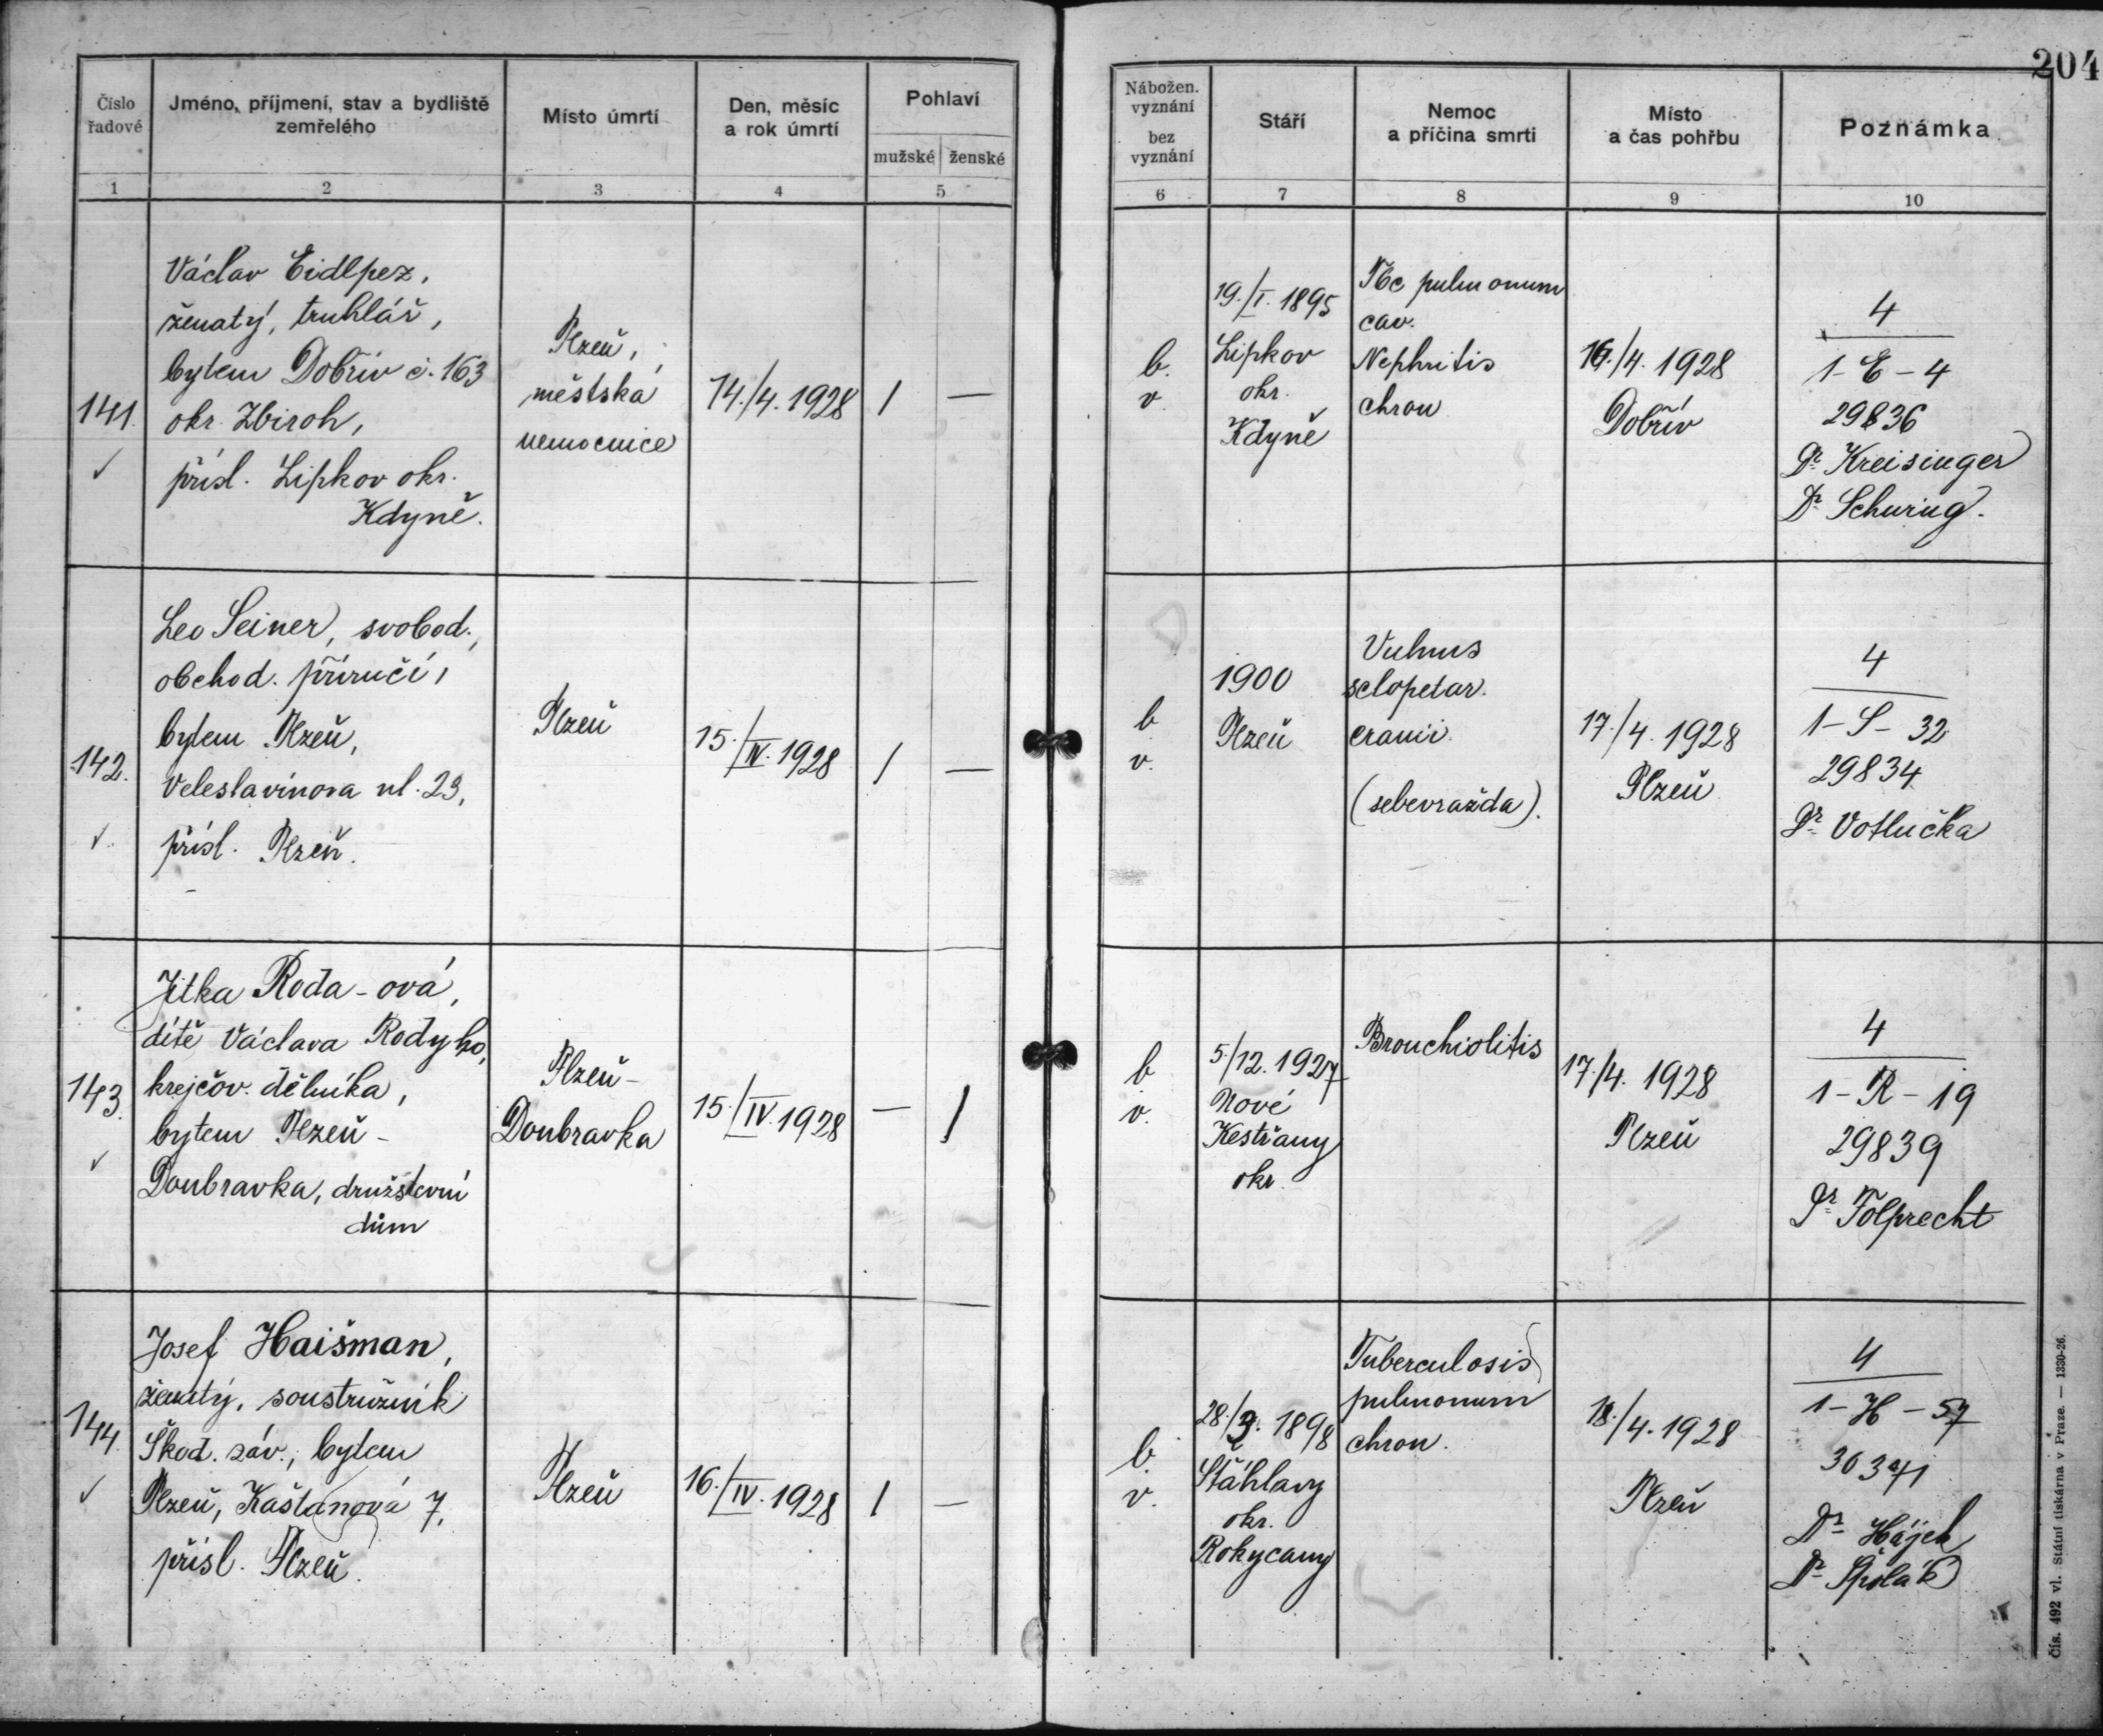 204
Číslo
řadové
Jméno, příjmení, stav a bydliště
zemřelého
Místo úmrtí
Den, měsíc
a rok úmrtí
Pohlaví
mužské ženské
Nábožen.
vyznání
bez
vyznání
Stáří
Nemoc
a příčina smrti
Místo
a čas pohřbu
Poznámka
1 2 3 4 5 6 7 8 9 10
141.
Václav Eidlpez,
ženatý, truhlář,
bytem Dobřív č. 163
okr. Zbiroh,
přísl. Lipkov okr.
Kdyně.
Plzeň,
městská
nemocnice
14./4. 1928
1 —
b.
v.
19./I. 1895
Lipkov
okr.
Kdyně
Tbc pulmonum
cav.
Nephritis
chron
16./4. 1928
Dobřív
4
1-E-4
29836
Dr Kreisinger
Dr Schwing.
142.
Leo Seiner, svobod.,
obchod. příručí,
bytem Plzeň,
Veleslavínova ul. 23,
přísl. Plzeň.
Plzeň
15./IV. 1928
1 —
b
v.
1900
Plzeň
Vulnus
sclopetar.
cranii
(sebevražda).
17./4. 1928
Plzeň
4
1-S-32
29834
Dr Votlučka
143.
Jitka Roda-ová,
dítě Václava Rodyho,
krejčov. dělníka,
bytem Plzeň-
Doubravka, družstevní
dům
Plzeň-
Doubravka
15./IV. 1928
— 1
b
v.
5./12. 1927
Nové
Kestřany
okr.
Bronchiolitis
17./4. 1928
Plzeň
4
1-R-19
29839
Dr Folprecht
144.
Josef Haišman,
ženatý, soustružník
Škod. záv., bytem
Plzeň, Kaštanová 7,
přísl. Plzeň.
Plzeň
16./IV. 1928
1 —
b.
v.
28./3. 1898
Šťáhlavy
okr.
Rokycany
Tuberculosis
pulmonum
chron.
18./4. 1928
Plzeň
4
1-H-57
30371
Dr Hájek
Dr Špilák
Čís. 492 vl. Státní tiskárna v Praze. — 1330-26.